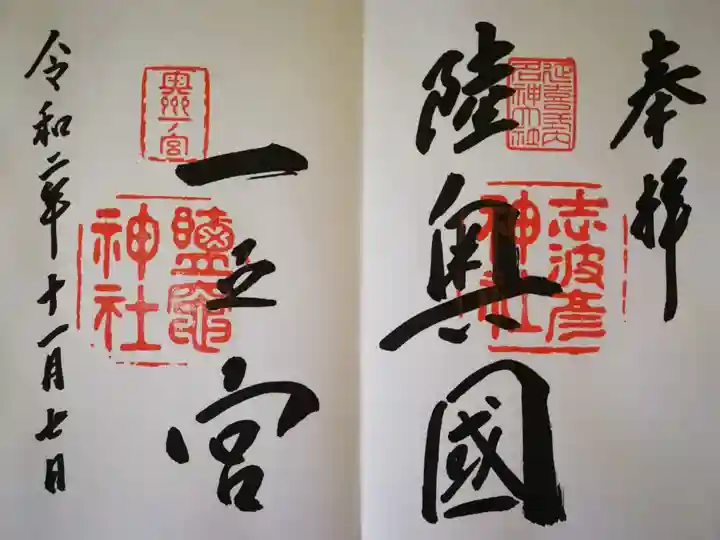 奉拝
延喜式内
名神大社
陸奥國
志波彦
神社
奥州一宮
一之宮
鹽竈
神社
令和二年十一月七日